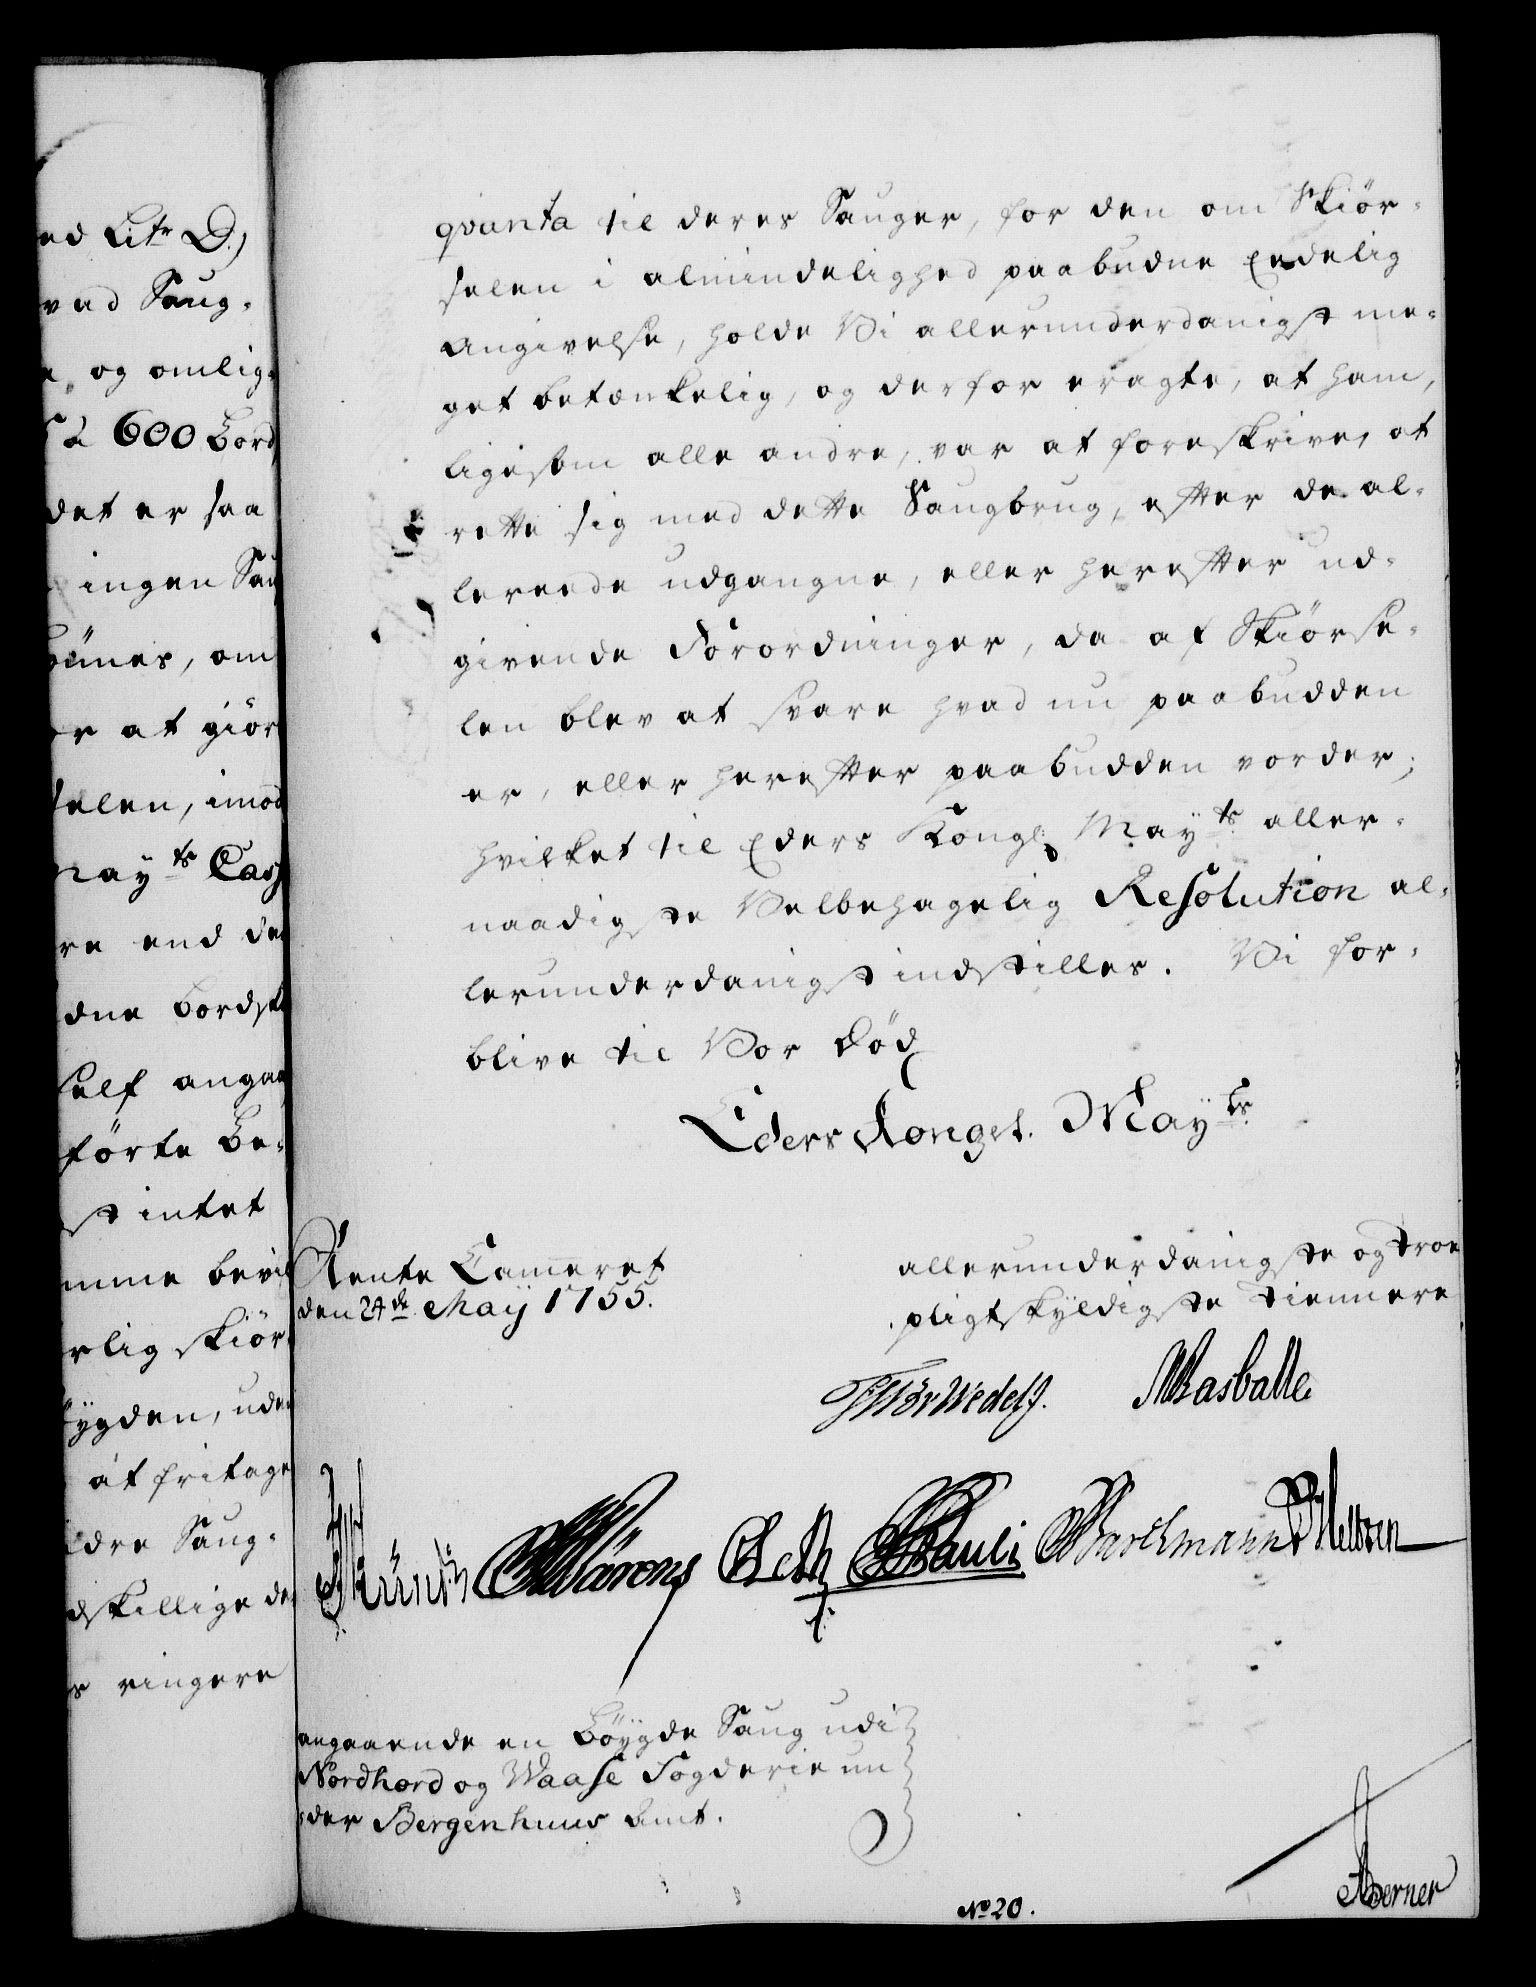 ed Litr D.)
vad Saug-
og omlig-
à 600 Bord
det er saa
ingen Sau
om
er at giör
selen, imod
Mayts Cass
re end de
dne Bordsk
self angaa
förte Be-
st intet
mme bevil
rlig skiör-
ygden, uden
at fritage
ldre Saug-
dskillige de
ringere
qvanta til deres Sauger, for den om Skiör-
selen i almindelighed paabudne Eedelig
Angivelse, holde Vi allerunderdanigst me-
get betænkelig, og derfor eragte, at ham,
ligesom alle andre, var at foreskrive, at
rette sig med dette Saugbrug, efter de al-
lereede udgangne, eller herefter ud-
givende Forordninger, da af Skiörse-
len blev at svare hvad nu paabudden
er, eller herefter paabudden vorder;
hvilket til Eders Kongl. Mayts aller-
naadigste Velbehagelig Resolution al-
lerunderdanigst indstilles. Vi for-
blive til Vor Död
Eders Kongel. Mayts
Rente Cameret
den 24de Maÿ 1755.
allerunderdanigste og troe
pligtskyldigste Tiennere
Wedelf. Masballe
Wärens Pauli Barchmann
angaaende en Böygde Saug udi
Nordhord og Waase Fogderie un
der Bergenhuus Amt.
Berner
No 20.